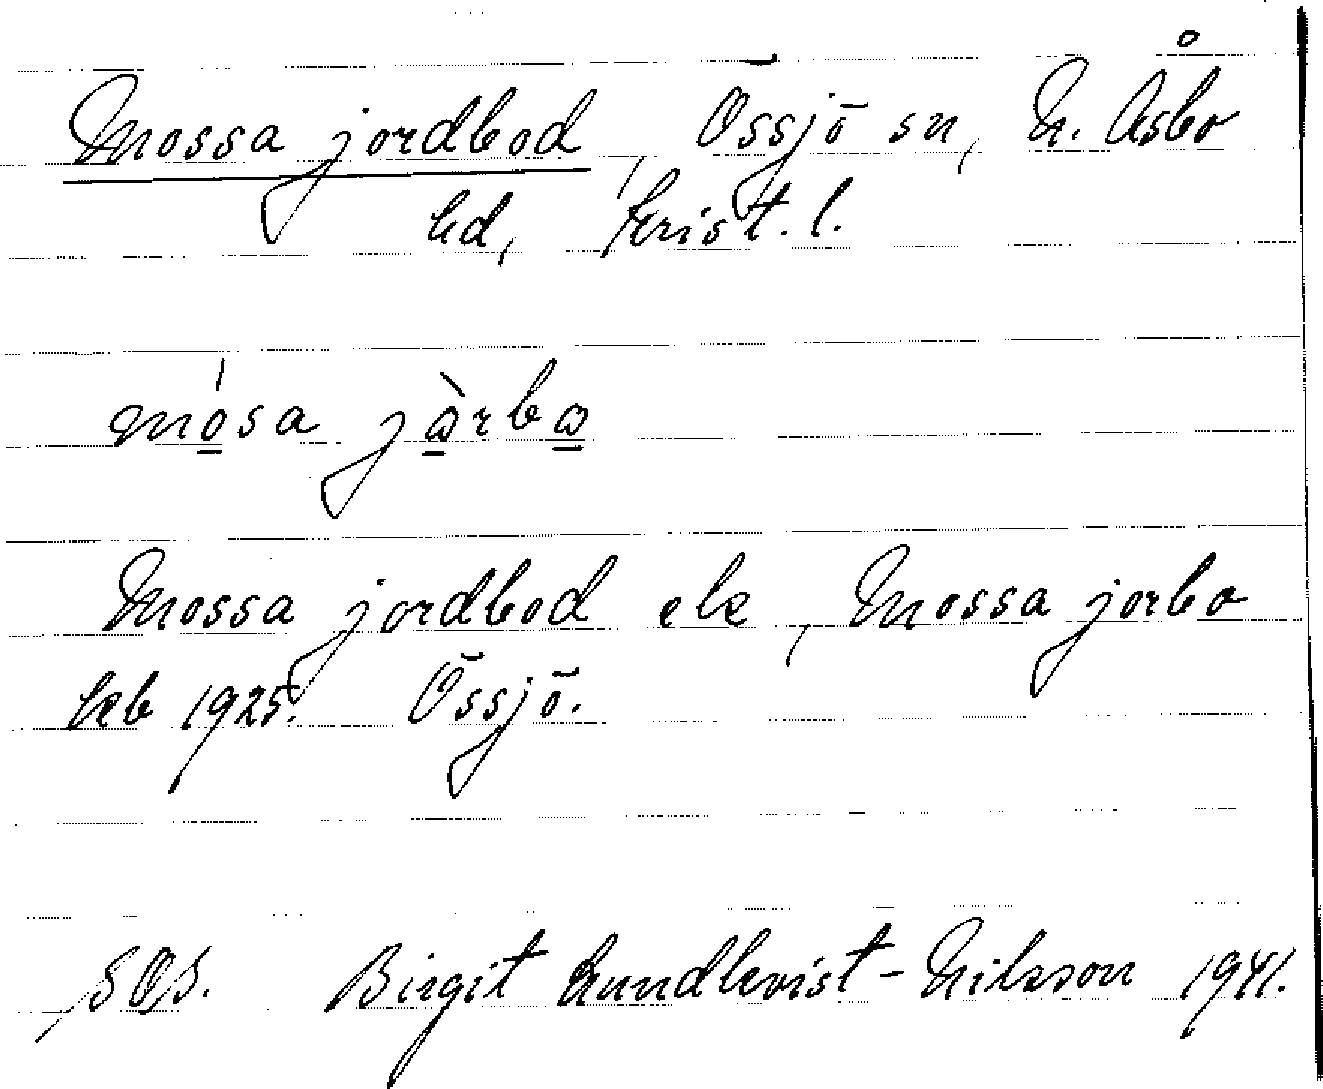 Mossa jordbod, Össjö sn, N. Åsbo
hd, Krist. l.
mósa jàrba
Mossa jordbod ek, Mossa jorbo
kb 1925. Össjö.
SOS. Birgit Lundkvist-Nilsson 1941.